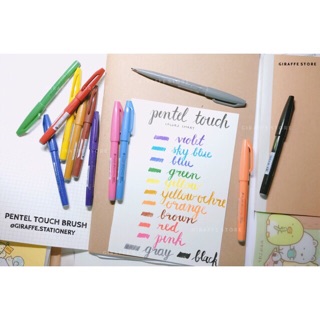 GIRAFFE STORE
pentel touch
violet
sky blue
blue
green
yellow
yellow ochre
orange
brown
red
pink
gray black
PENTEL TOUCH BRUSH
@GIRAFFE.STATIONERY